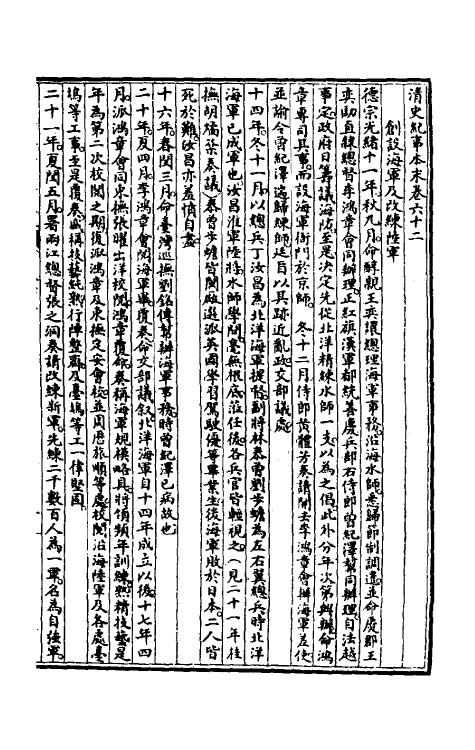 清史紀事本末卷六十二
創設海軍及改練陸軍
德宗光緒十一年秋九月命醇親王奕譞總理海軍事務沿海水師悉歸節制調遣並命慶郡王
奕劻直隸總督李鴻章會同辦理正紅旗漢軍都統善慶兵部右侍郎曾紀澤幫同辦理自法越
事定政府日籌議海防至是決定先從北洋精練水師一支以為之倡此外分年次第興辦命鴻
章專司其事而設海軍衙門於京師 冬十二月侍郎黃體芳奏請開去李鴻章會辦海軍差使
並諭令曾紀澤遄歸練師廷旨以其跡近亂政交部議處
十四年冬十一月以總兵丁汝昌為北洋海軍提督副將林泰曾劉步蟾為左右翼總兵時北洋
海軍已成軍也汝昌淮軍陸將水師學問毫無根底蒞任後各兵官皆輕視之（見二十一年往
撫明橋柒奏議）泰曾步蟾皆閩廠遴派英國學習駕駛優等畢業生後海軍敗於日本二人皆
死於難汝昌亦羞憤自盡
十六年春閏三月命臺灣巡撫劉銘傳幫辦海軍事務時曾紀澤已病故也
二十年夏四月李鴻章會閱海軍畢覆奏命交部議敘北洋海軍自十四年成立以後十七年四
月派鴻章會同東撫張曜出洋校閱鴻章覆奏稱海軍規模略具將領頻年訓練熟精技藝是
年為第二次校閱之期復派鴻章及東撫定安會校並周歷旅順等處校閱沿海陸軍及各處臺
塢等工事至是覆奏盛稱技藝純熟行陣整肅及臺塢等工一律堅固
二十一年夏閏五月署兩江總督張之洞奏請改練新軍先練二千數百人為一軍名為自強軍